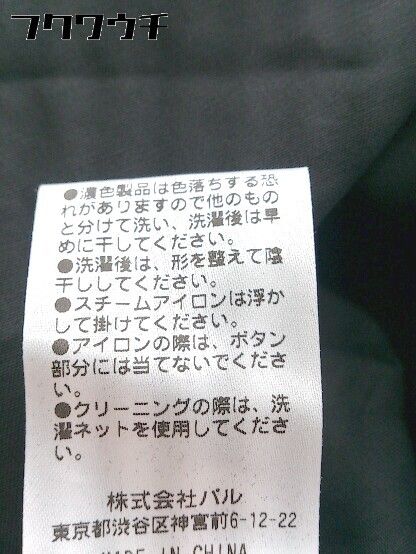 フクワウチ
●濃色製品は色落ちする恐
れがありますので他のもの
と分けて洗い、洗濯後は早
めに干してください。
●洗濯後は、形を整えて陰
干ししてください。
●スチームアイロンは浮か
して掛けてください。
●アイロンの際は、ボタン
部分には当てないでくださ
い。
●クリーニングの際は、洗
濯ネットを使用してくださ
い。
株式会社パル
東京都渋谷区神宮前6-12-22
MADE IN CHINA